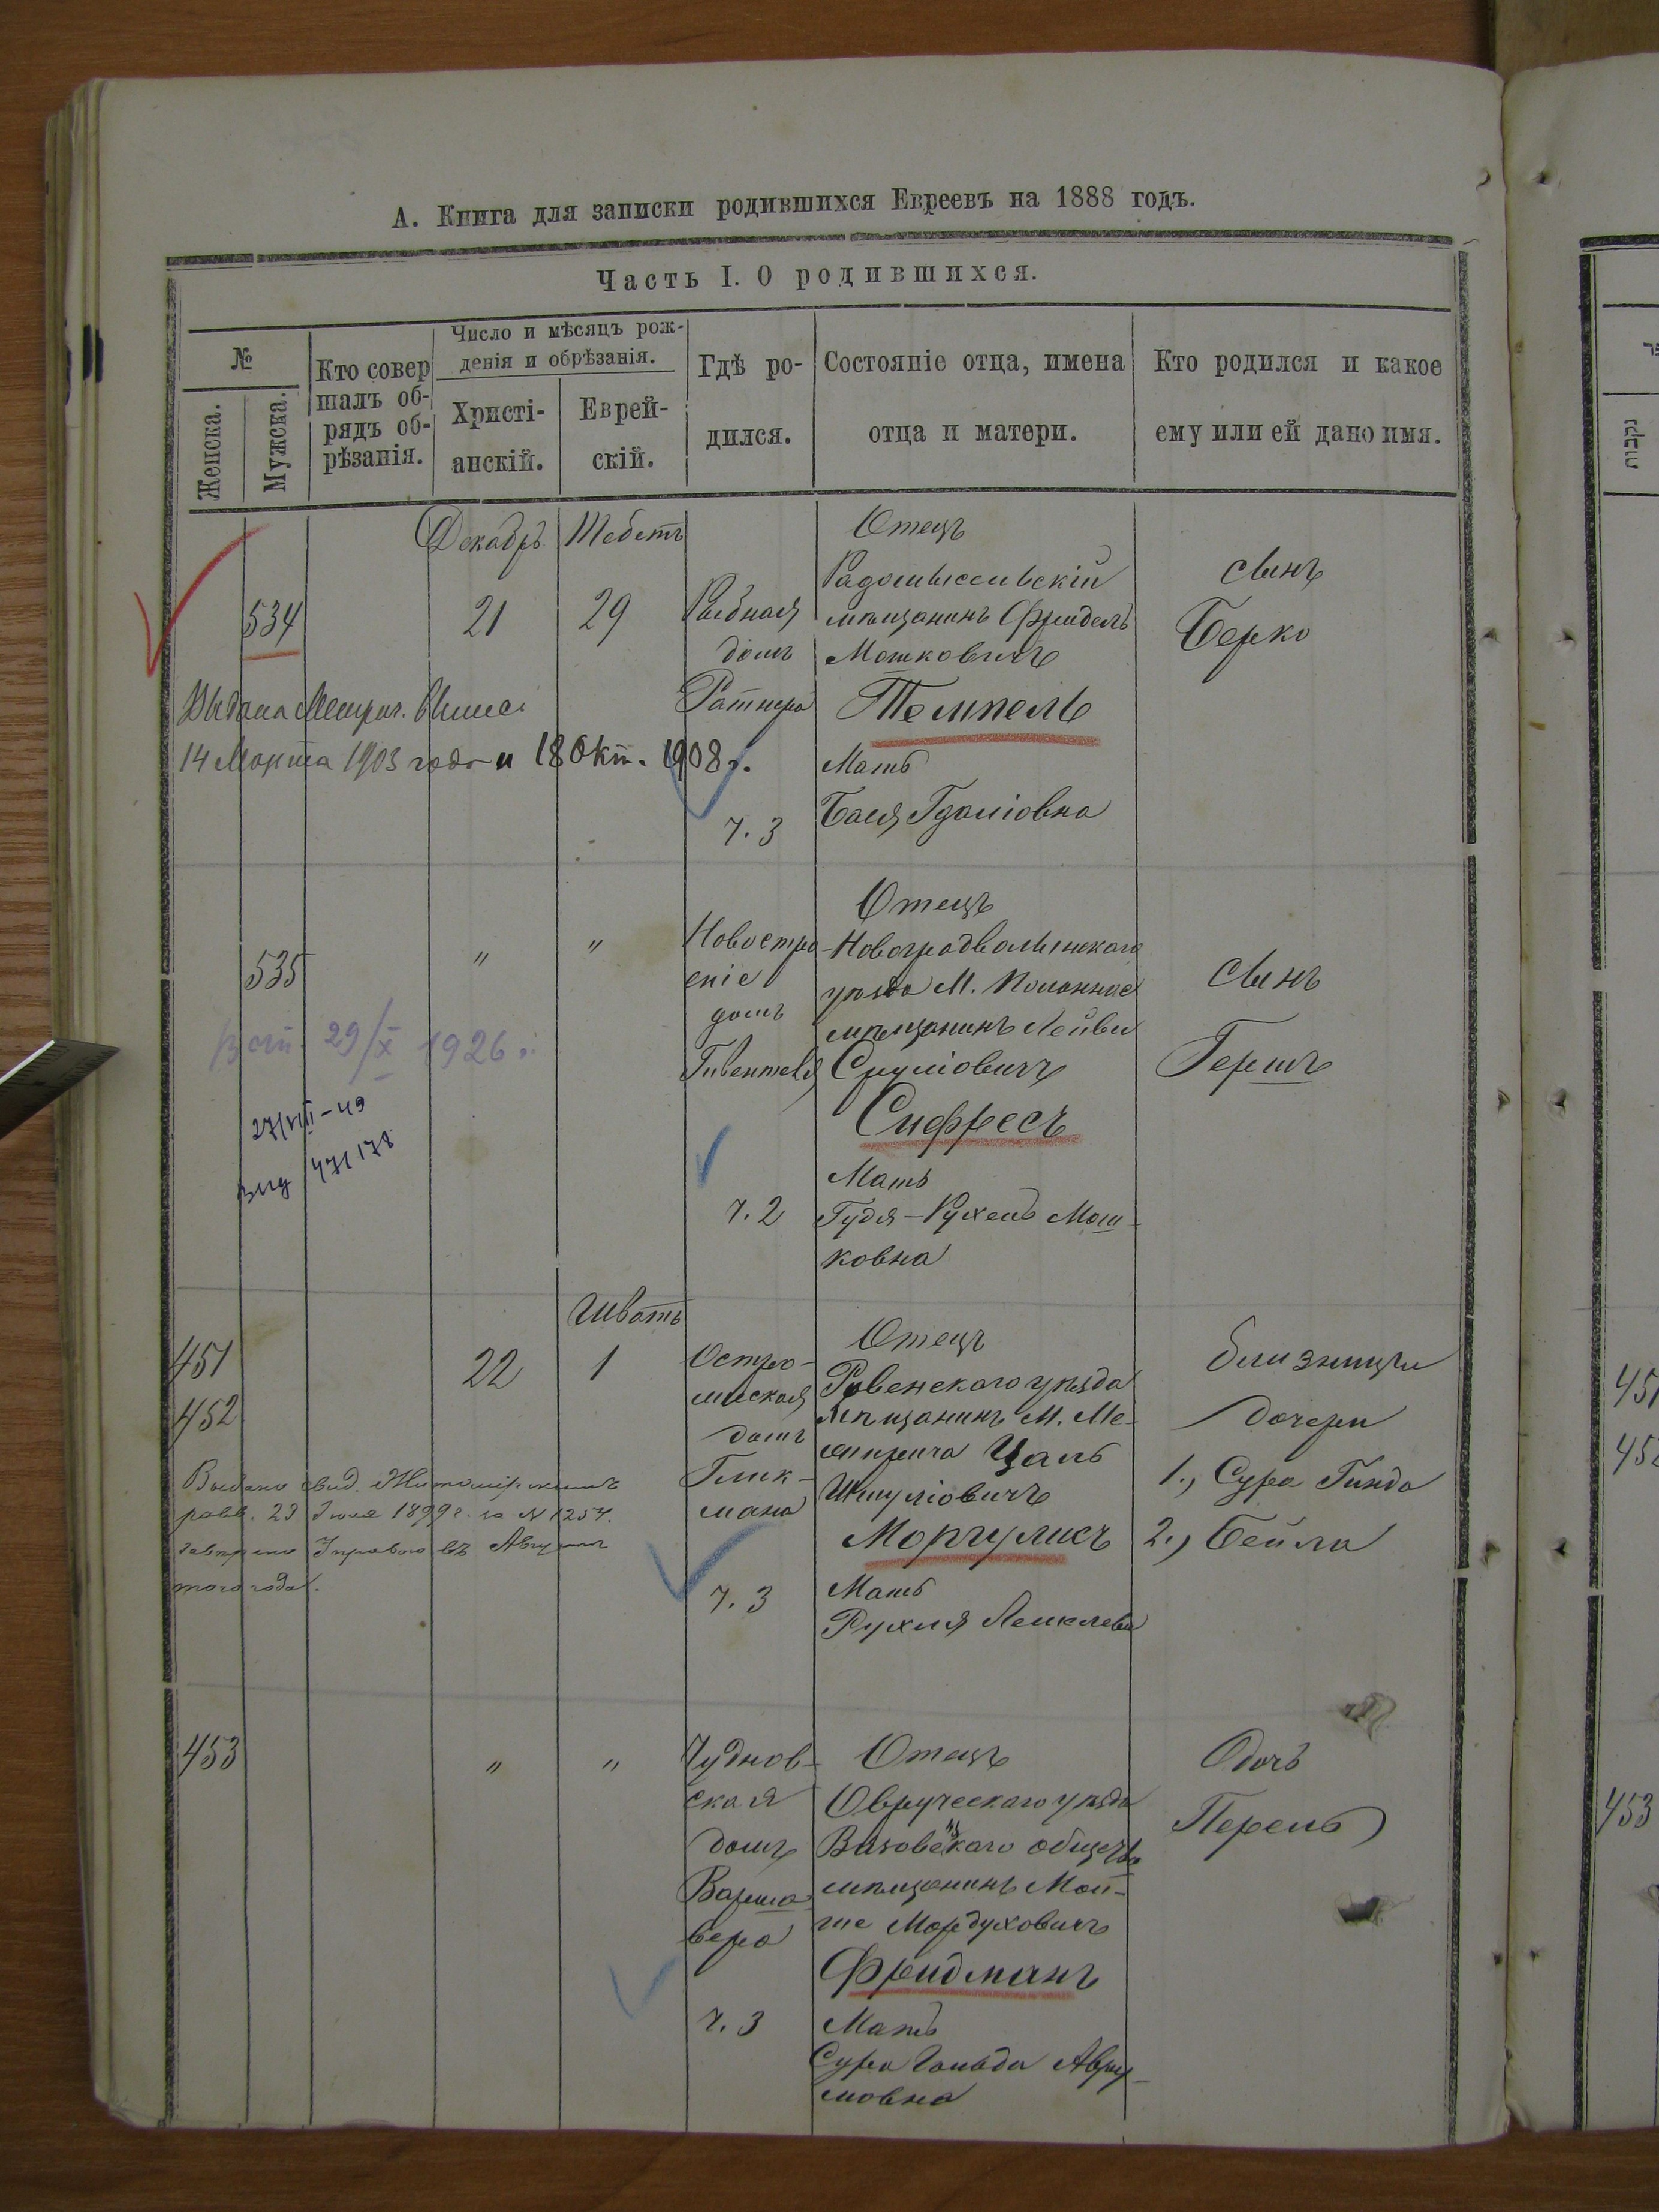 А. Книга для записки родившихся Евреевъ на 1888 годъ.
Часть I. О родившихся.
№
Женска.
Мужска.
Кто совер
шалъ об-
рядъ об-
рѣзанія.
Число и мѣсяцъ рож-
денія и обрѣзанія.
Христі-
анскій.
Еврей-
скій.
Гдѣ ро-
дился.
Состояніе отца, имена
отца и матери.
Кто родился и какое
ему или ей дано имя.
534
Декабръ
21
Тебетъ
29
Рыбная
домъ
Ратнера
ч. 3
Отецъ
Радомысльскій
мѣщанинъ Фридель
Мошковичъ
Темпель
Мать
Бася Гдаліовна
сынъ
Берко
Выдана Метрич. выпис.
14 Марта 1903 года и 18 Окт. 1908 г.
535
"
"
Новостро
еніе
домъ
ч. 2
Отецъ
Новоградволынскаго
уѣзда М. Полонное
мѣщанинъ Лейви
Сруліовичъ
Сифресъ
Мать
Гудя-Рухель Мош-
ковна
сынъ
Гершъ
29/X 1926 г.
27/VIII-49
471178
451
452
22
Шватъ
1
домъ
Глик-
мана
ч. 3
Отецъ
Ровенскаго уѣзда
мѣщанинъ М. Ме-
жирича Цаль
Шмуліовичъ
Моргулисъ
Мать
Рухля
близницы
дочери
1., Сура Гинда
2., Бейла
Выдано свид. Житомірскимъ
равв. 23 Іюля 1899 г. за N 1254.
Августѣ
того года.
453
"
"
Чуднов-
ская
домъ
Варша-
вера
ч. 3
Отецъ
Овручскаго уѣзда
общества
мѣщанинъ Мой-
ше Мордуховичъ
Фридманъ
Мать
Сура Гольда Авру-
мовна
Дочь
Перель
451
453